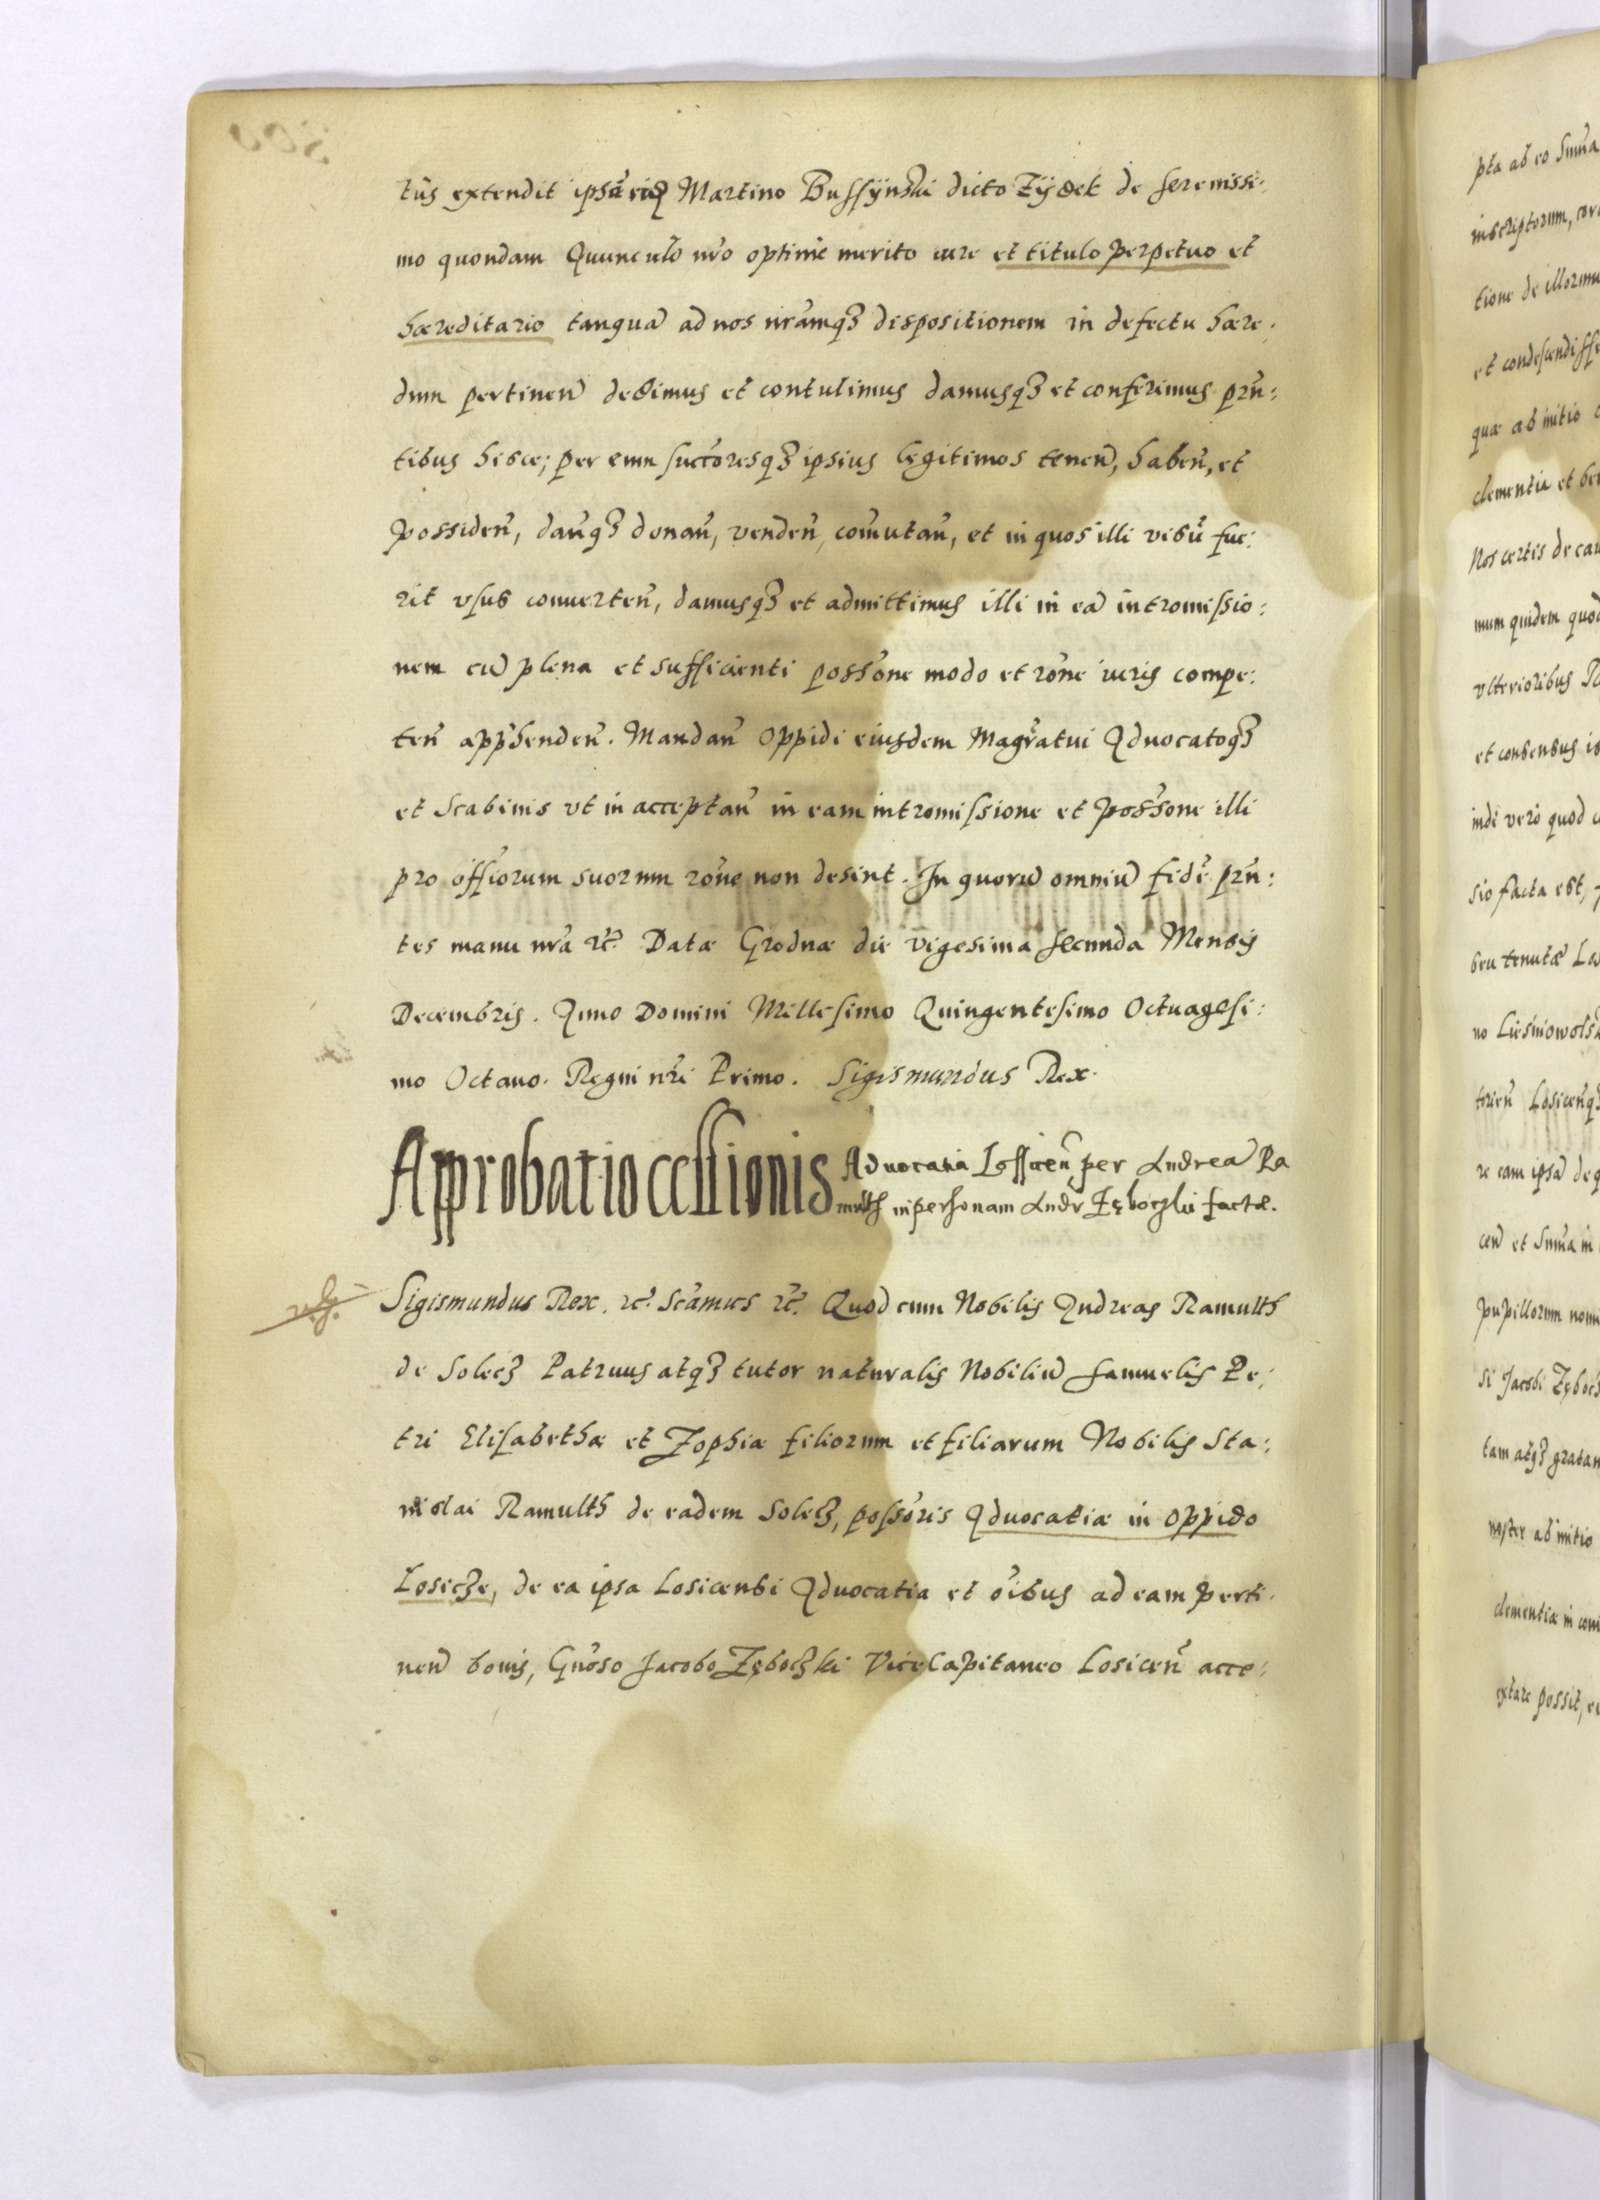 tus extendit ipsu Martino Bussÿnski dicto Zÿdek de serenissi:
mo quondam Avunculo nro optime merito iure et titulo perpetuo et
hæreditario tanqua ad nos nramqʒ dispositionem in defectu hære:
dum pertinen dedimus et contulimus damusqʒ et conferimus prn:
tibus hisce; per eum succoresqʒ ipsius legitimos tenen, haben, et
possiden, danqʒ donan, venden, comutan, et in quos illi visu fue:
rit vsus conuerten, damusqʒ et admittimus illi in ea intromissio:
nem cu plena et sufficienti possone modo et rone iuris compe:
ten apphenden. Mandan oppidi eiusdem Magratui Advocatoqʒ
et Scabinis vt in acceptan in eam intromissione et possone illi
pro offiorum suorum rone non desint. In quoru omniu fide prn:
tes manu nra etc. Datæ Grodnæ die vigesima secunda Mensis
Decembris. Anno Domini Millesimo Quingentesimo Octuagesi:
mo Octauo. Regni nri Primo. Sigismundus Rex.
Approbatio cessionis Advocatia Lossicen per Andrea Ra
multh in personam Andr Zęboczki factæ.
Sigismundus Rex. etc. Scamus etc. Quod cum Nobilis Andreas Ramulth
de Solecz Patruus atqʒ tutor naturalis Nobiliu Samuelis Pe:
tri Elisabethæ et Zophiæ filiorum et filiarum Nobilis Sta:
nislai Ramulth de eadem Solecz, possoris Advocatiæ in oppido
Losicze, de ea ipsa Losicensi Advocatia et oibus ad eam perti:
nen bonis, Gnoso Jacobo Zęboczki ViceCapitaneo Losicen acce:
pta ab eo Suma
inscriptorum,
tione de illorum
et condescendisse
quæ ab initio
clementia et
Nos certis de
mum quidem quod
vlterioribus
et consensus
inde vero quod
sio facta est,
seu tenutæ
no
Losicenqʒ
re eam ipsa de
cen et Suma in
pupillorum
si Jacobi
tam atqʒ gratam
noster ab initio
clementiæ in
extare possit,